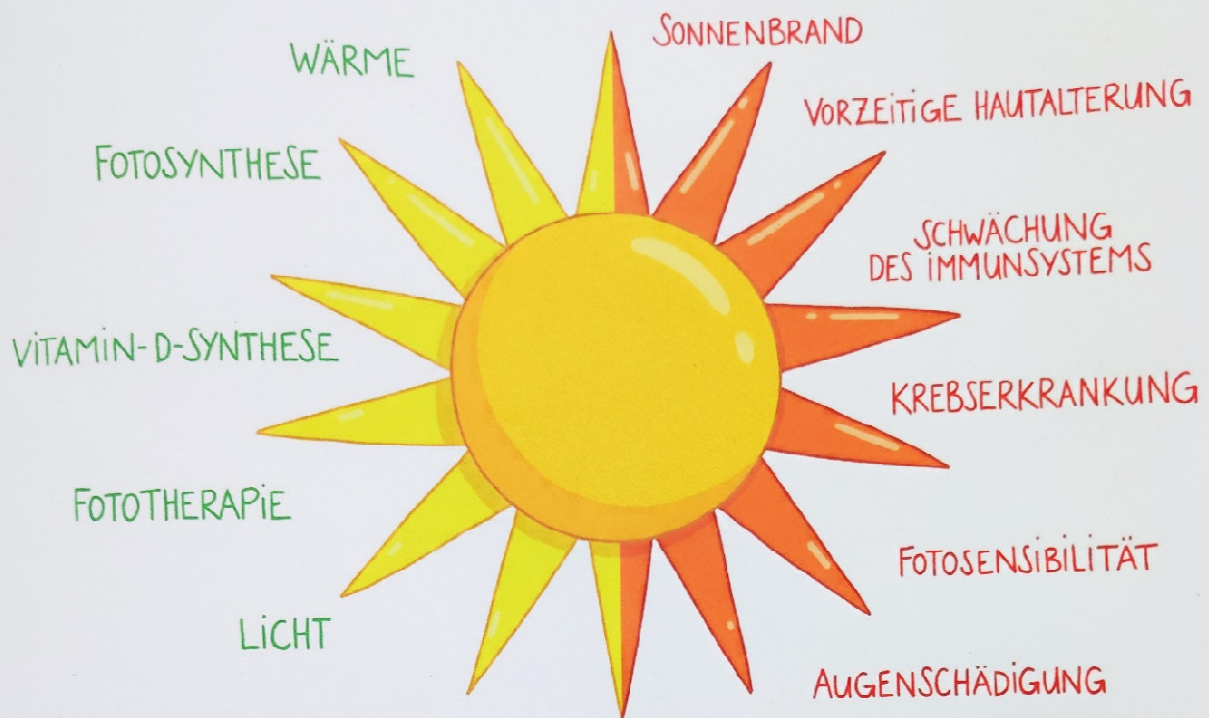 WÄRME
FOTOSYNTHESE
VITAMIN-D-SYNTHESE
FOTOTHERAPIE
LICHT
SONNENBRAND
VORZEITIGE HAUTALTERUNG
SCHWÄCHUNG
DES IMMUNSYSTEMS
KREBSERKRANKUNG
FOTOSENSIBILITÄT
AUGENSCHÄDIGUNG